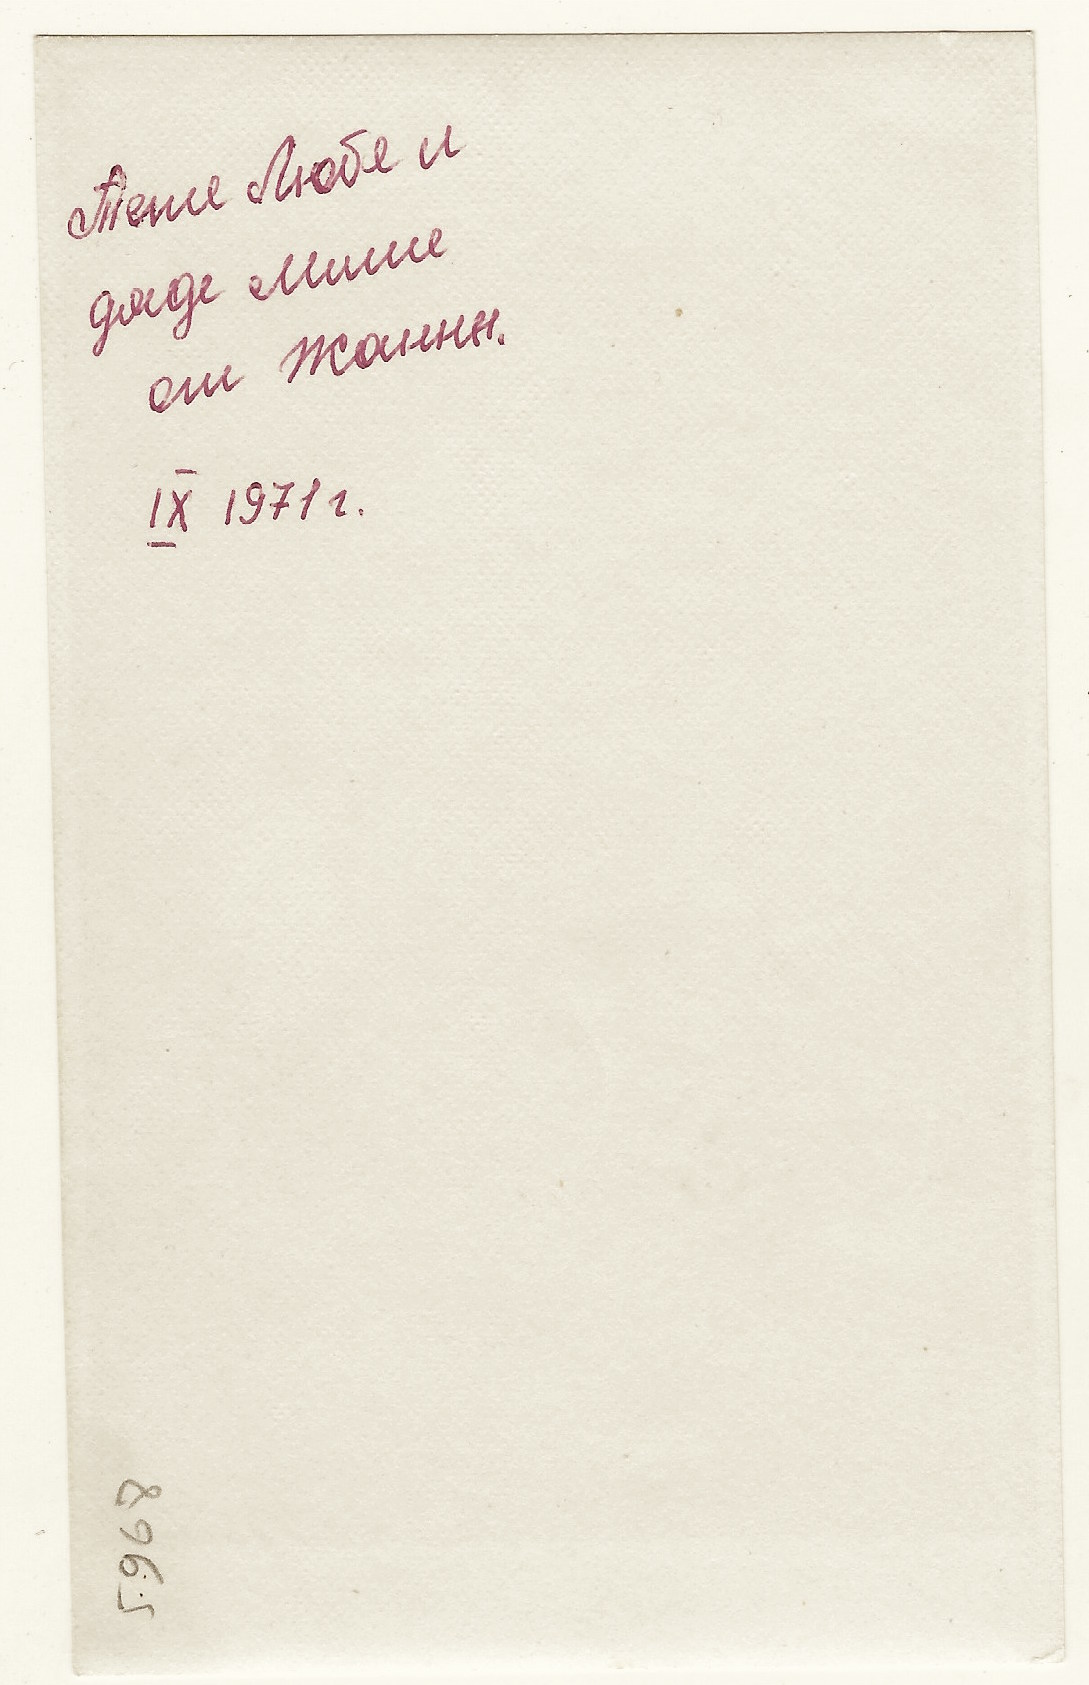 Тете Любе и
дяде Мише
от Жанны.
IX 1971 г.